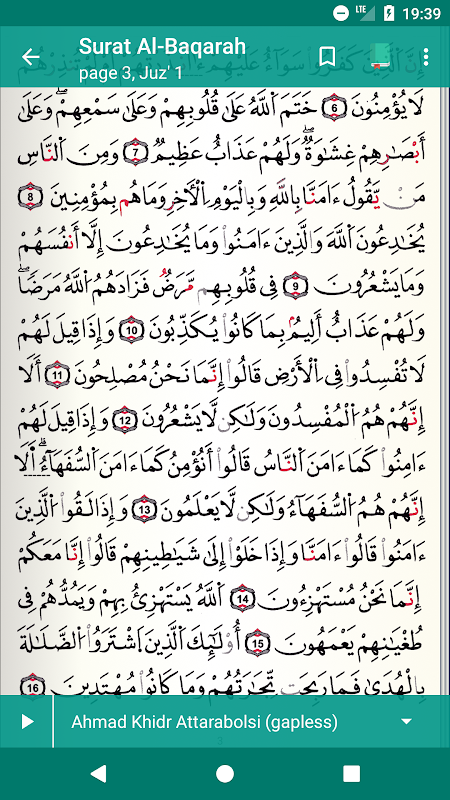 19:39
LTE
Surat Al-Baqarah
page 3, Juz' 1
إِنَّ ٱلَّذِينَ كَفَرُوا۟ سَوَآءٌ عَلَيْهِمْ ءَأَنذَرْتَهُمْ أَمْ لَمْ تُنذِرْهُمْ
لَا يُؤْمِنُونَ 6 خَتَمَ ٱللَّهُ عَلَىٰ قُلُوبِهِمْ وَعَلَىٰ سَمْعِهِمْ ۖ وَعَلَىٰٓ
أَبْصَٰرِهِمْ غِشَٰوَةٌ ۖ وَلَهُمْ عَذَابٌ عَظِيمٌ 7 وَمِنَ ٱلنَّاسِ
مَن يَقُولُ ءَامَنَّا بِٱللَّهِ وَبِٱلْيَوْمِ ٱلْأَخِرِ وَمَا هُم بِمُؤْمِنِينَ 8
يُخَٰدِعُونَ ٱللَّهَ وَٱلَّذِينَ ءَامَنُوا۟ وَمَا يُخَٰدِعُونَ إِلَّآ أَنفُسَهُمْ
وَمَا يَشْعُرُونَ 9 فِى قُلُوبِهِم مَّرَضٌ فَزَادَهُمُ ٱللَّهُ مَرَضًا ۖ
وَلَهُمْ عَذَابٌ أَلِيمٌۢ بِمَا كَانُوا۟ يُكَذِّبُونَ 10 وَإِذَا قِيلَ لَهُمْ
لَا تُفْسِدُوا۟ فِى ٱلْأَرْضِ قَالُوٓا۟ إِنَّمَا نَحْنُ مُصْلِحُونَ 11 أَلَآ
إِنَّهُمْ هُمُ ٱلْمُفْسِدُونَ وَلَٰكِن لَّا يَشْعُرُونَ 12 وَإِذَا قِيلَ لَهُمْ
ءَامِنُوا۟ كَمَآ ءَامَنَ ٱلنَّاسُ قَالُوٓا۟ أَنُؤْمِنُ كَمَآ ءَامَنَ ٱلسُّفَهَآءُ ۗ أَلَآ
إِنَّهُمْ هُمُ ٱلسُّفَهَآءُ وَلَٰكِن لَّا يَعْلَمُونَ 13 وَإِذَا لَقُوا۟ ٱلَّذِينَ
ءَامَنُوا۟ قَالُوٓا۟ ءَامَنَّا وَإِذَا خَلَوْا۟ إِلَىٰ شَيَٰطِينِهِمْ قَالُوٓا۟ إِنَّا مَعَكُمْ
إِنَّمَا نَحْنُ مُسْتَهْزِءُونَ 14 ٱللَّهُ يَسْتَهْزِئُ بِهِمْ وَيَمُدُّهُمْ فِى
طُغْيَٰنِهِمْ يَعْمَهُونَ 15 أُو۟لَٰٓئِكَ ٱلَّذِينَ ٱشْتَرَوُا۟ ٱلضَّلَٰلَةَ
بِٱلْهُدَىٰ فَمَا رَبِحَت تِّجَٰرَتُهُمْ وَمَا كَانُوا۟ مُهْتَدِينَ 16
Ahmad Khidr Attarabolsi (gapless)